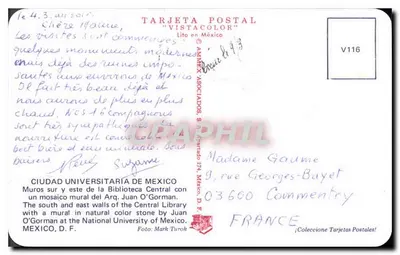 le 4.3.
Chère Madame,
Les visites sont commencées
quelques monuments modernes
mais déjà des ruines impo-
santes aux environs de Mexico
Il fait très beau déjà et
nous aurons de plus en plus
chaud. Nos 12 compagnons
sont très sympathiques. La
nourriture est convenable
bort bière et eau minérale. Bons
baisers
Suzanne
TARJETA POSTAL
"VISTACOLOR"
Lito en México.
V116
Madame Gaume
rue Georges-Buget
03600 Commentry
FRANCE
CIUDAD UNIVERSITARIA DE MEXICO
Muros sur y este de la Biblioteca Central con
un mosaico mural del Arq. Juan O'Gorman.
The south and east walls of the Central Library
with a mural in natural color stone by Juan
O'Gorman at the National University of Mexico.
MEXICO, D. F.
Foto: Mark Turok
¡Coleccione Tarjetas Postales!